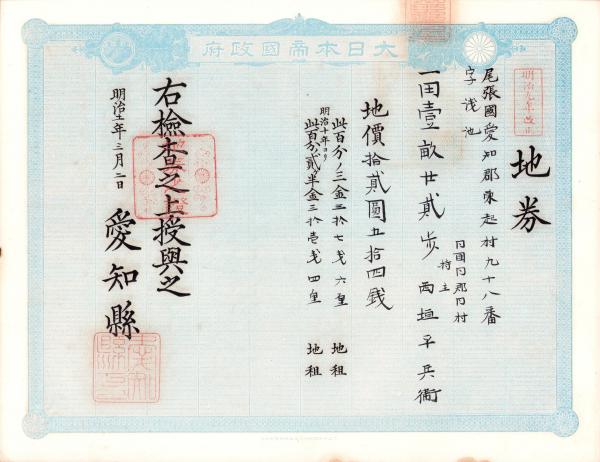 大日本帝國政府
明治九年改正
地券
尾張國愛知郡東起村九十八番
字浅池
一田壹畝廿貳歩
同國同郡同村
持主
西垣平兵衞
地價拾貳圓五拾四錢
此百分ノ三金三拾七錢六厘 地租
明治十年ヨリ
此百分貳ヶ半金三拾壱錢四厘 地租
右檢査之上授與之
明治十一年三月二日
愛知縣